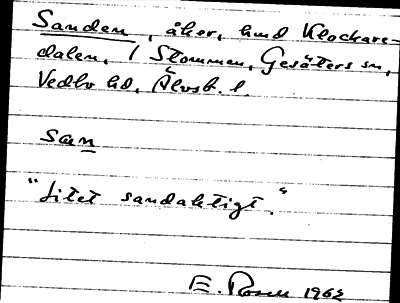 Sanden, åker, hmd Klockare-
dalen, 1 Stommen, Gesäters sn,
Vedbo hd, Älvsb. l.
san
"Litet sandaktigt."
E. Rosell 1962